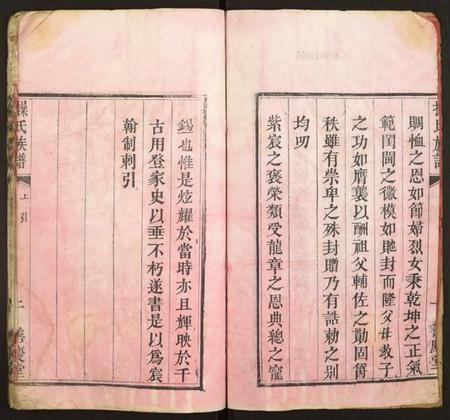 賙恤之恩如節婦烈女秉乾坤之正氣
範閨閫之徽模如貤封而隆父母教子
之功如廕襲以酬祖父輔佐之勛固爵
秩雖有崇卑之殊封贈乃有誥勅之別
均叨
紫宸之褒榮類受龍章之恩典總之寵
錫也惟是炫耀於當時亦且輝映於千
古用登家史以垂不朽遂書是以為宸
翰制剌引
操氏族譜
上引
二
善慶堂